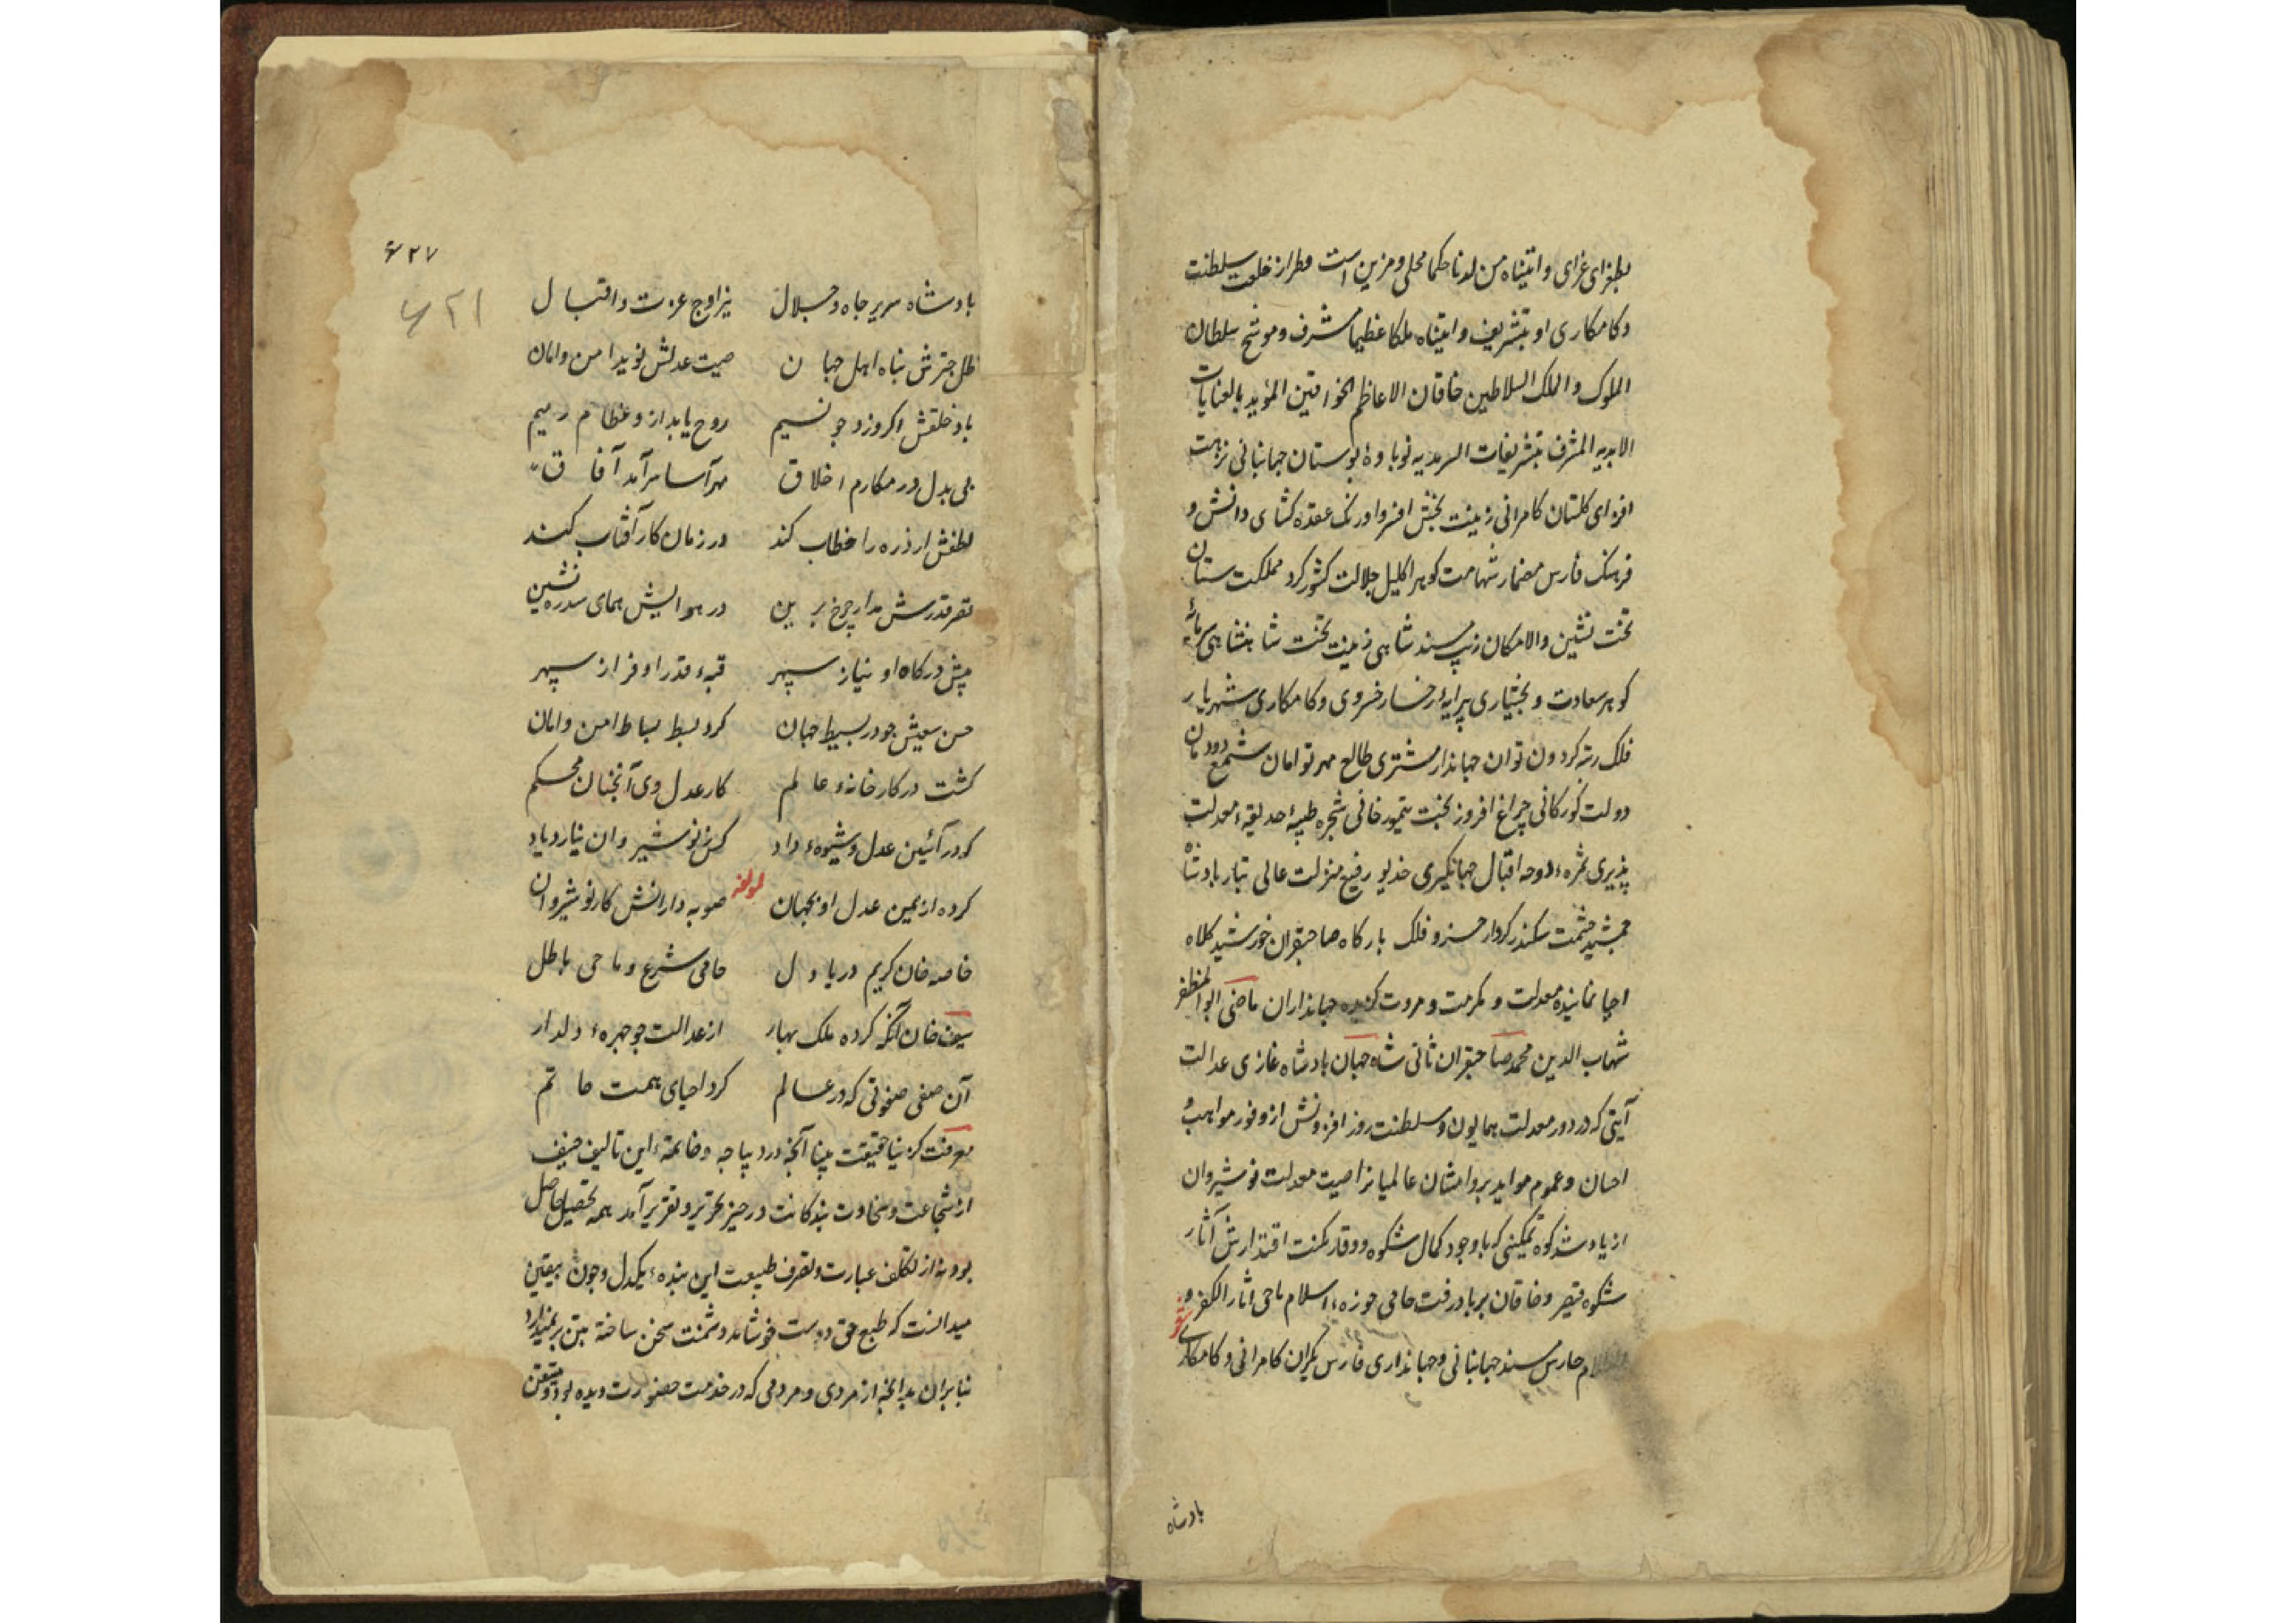 بطغرای غرای واتیناه من لدنا حکما محلی و مزین است و طراز خلعت سلطنت
و کامکاری او بتشریف واتیناه ملکا عظیما مشرف و موشح سلطان
الملوک و الملک السلاطین خاقان الاعاظم الخواقین المؤید بالعنایات
الابدیه المشرف بتشریفات السرمدیه نوباوهٔ بوستان جهانبانی نزهت
افزای کلستان کامرانی زینت بخش افسر و اورنک عقده کشای دانش و
فرهنک فارس مضمار شهامت کوهر اکلیل جلالت کشور کرد مملکت ستان
تخت نشین والامکان زیب مسند شاهی زینت تخت شاهنشاهی
کوهر سعادت و بختیاری پیرایهٔ رخسار خسروی و کامکاری شهریار
فلک رتبه کردون توان جهاندار مشتری طالع مهر توامان شمع دودمان
دولت کورکانی چراغ افروز بخت تیمور خانی شجره طیبهٔ حدیقهٔ معدلت
پذیری ثمرهٔ دوحه اقبال جهانکیری خدیو رفیع منزلت عالی تبار بادشاه
جمشید حشمت سکندر کردار خسرو فلک بارکاه صاحبقران خورشید کلاه
احیا نمایندهٔ معدلت و مکرمت و مروت جهانداران ماضی ابوالمظفر
شهاب الدین محمد صاحبقران ثانی شاه جهان بادشاه غازی عدالت
آیتی که در دور معدلت همایون و سلطنت روز افزونش از وفور مواهب و
احسان و عموم مواید بر وامتنان عالمیانرا صیت معدلت نوشیروان
از یاد شد کوه تمکینی که با وجود کمال شکوه و وقار مکنت اقتدارش آثار
شکوه قیصر و خاقان بر باد رفت حامی حوزهٔ اسلام ماحی اثار الکفر و
حارس مسند جهانبانی و جهانداری فارس یکران کامرانی و کامکاری
بادشاه
۶۲۷
۶۲۱
بادشاه سریر جاه و جلال نیر اوج عزت و اقبال
ظل چترش پناه اهل جهان صیت عدلش نوید امن و امان
باد خلقش اکر وزد چو نسیم روح یابد ازو عظام رمیم
بی بدل در مکارم اخلاق مهر آسا سرآمد آفاق
لطفش ار ذره را خطاب کند در زمان کار آفتاب کند
قصر قدرش مدار چرخ برین در هوایش همای سدره نشین
پیش درکاه او نیاز سپهر قبهٔ قدر او فراز سپهر
حسن سعیش چو در بسیط جهان کرد بسط بساط امن و امان
کشت در کارخانهٔ عالم کار عدل وی آنچنان محکم
که در آئین عدل و شیوهٔ داد کس ز نوشیروان نیارد یاد
کرده از یمن عدل او بجهان لمولفه صوبه دارانش کار نوشیروان
خاصه خان کریم دریا دل حامی شرع و ماحی باطل
سیف خان آنکه کرده ملک بهار از عدالت چو چهرهٔ دلدار
آن صفی صفوتی که در عالم کرد احیای همت حاتم
معرفت کزینا حقیقت بینا آنچه در دیباجه و خاتمهٔ این تالیف حنیف
از شجاعت و سخاوت بندکانت در حیز تحریر و تقریر آمد همه تحصیل حاصل
بود نه از تکلف عبارت و تصرف طبیعت این بندهٔ یکدل و چون بیقین
میدانست که طبع حق دوست خوشامد دشمنت سخن ساخته
بنابران بدانچه از مردی و مردمی که در خدمت حضورت دیده بود و متیقن